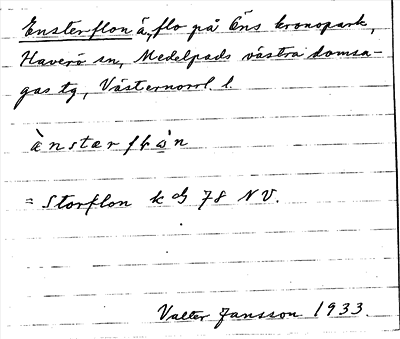 Ensterflon å, flo på Öns kronopark,
Haverö sn, Medelpads västra domsa-
gas tg, Västernorrl. l.
= Storflon k bl 78 NV.
Valter Jansson 1933.